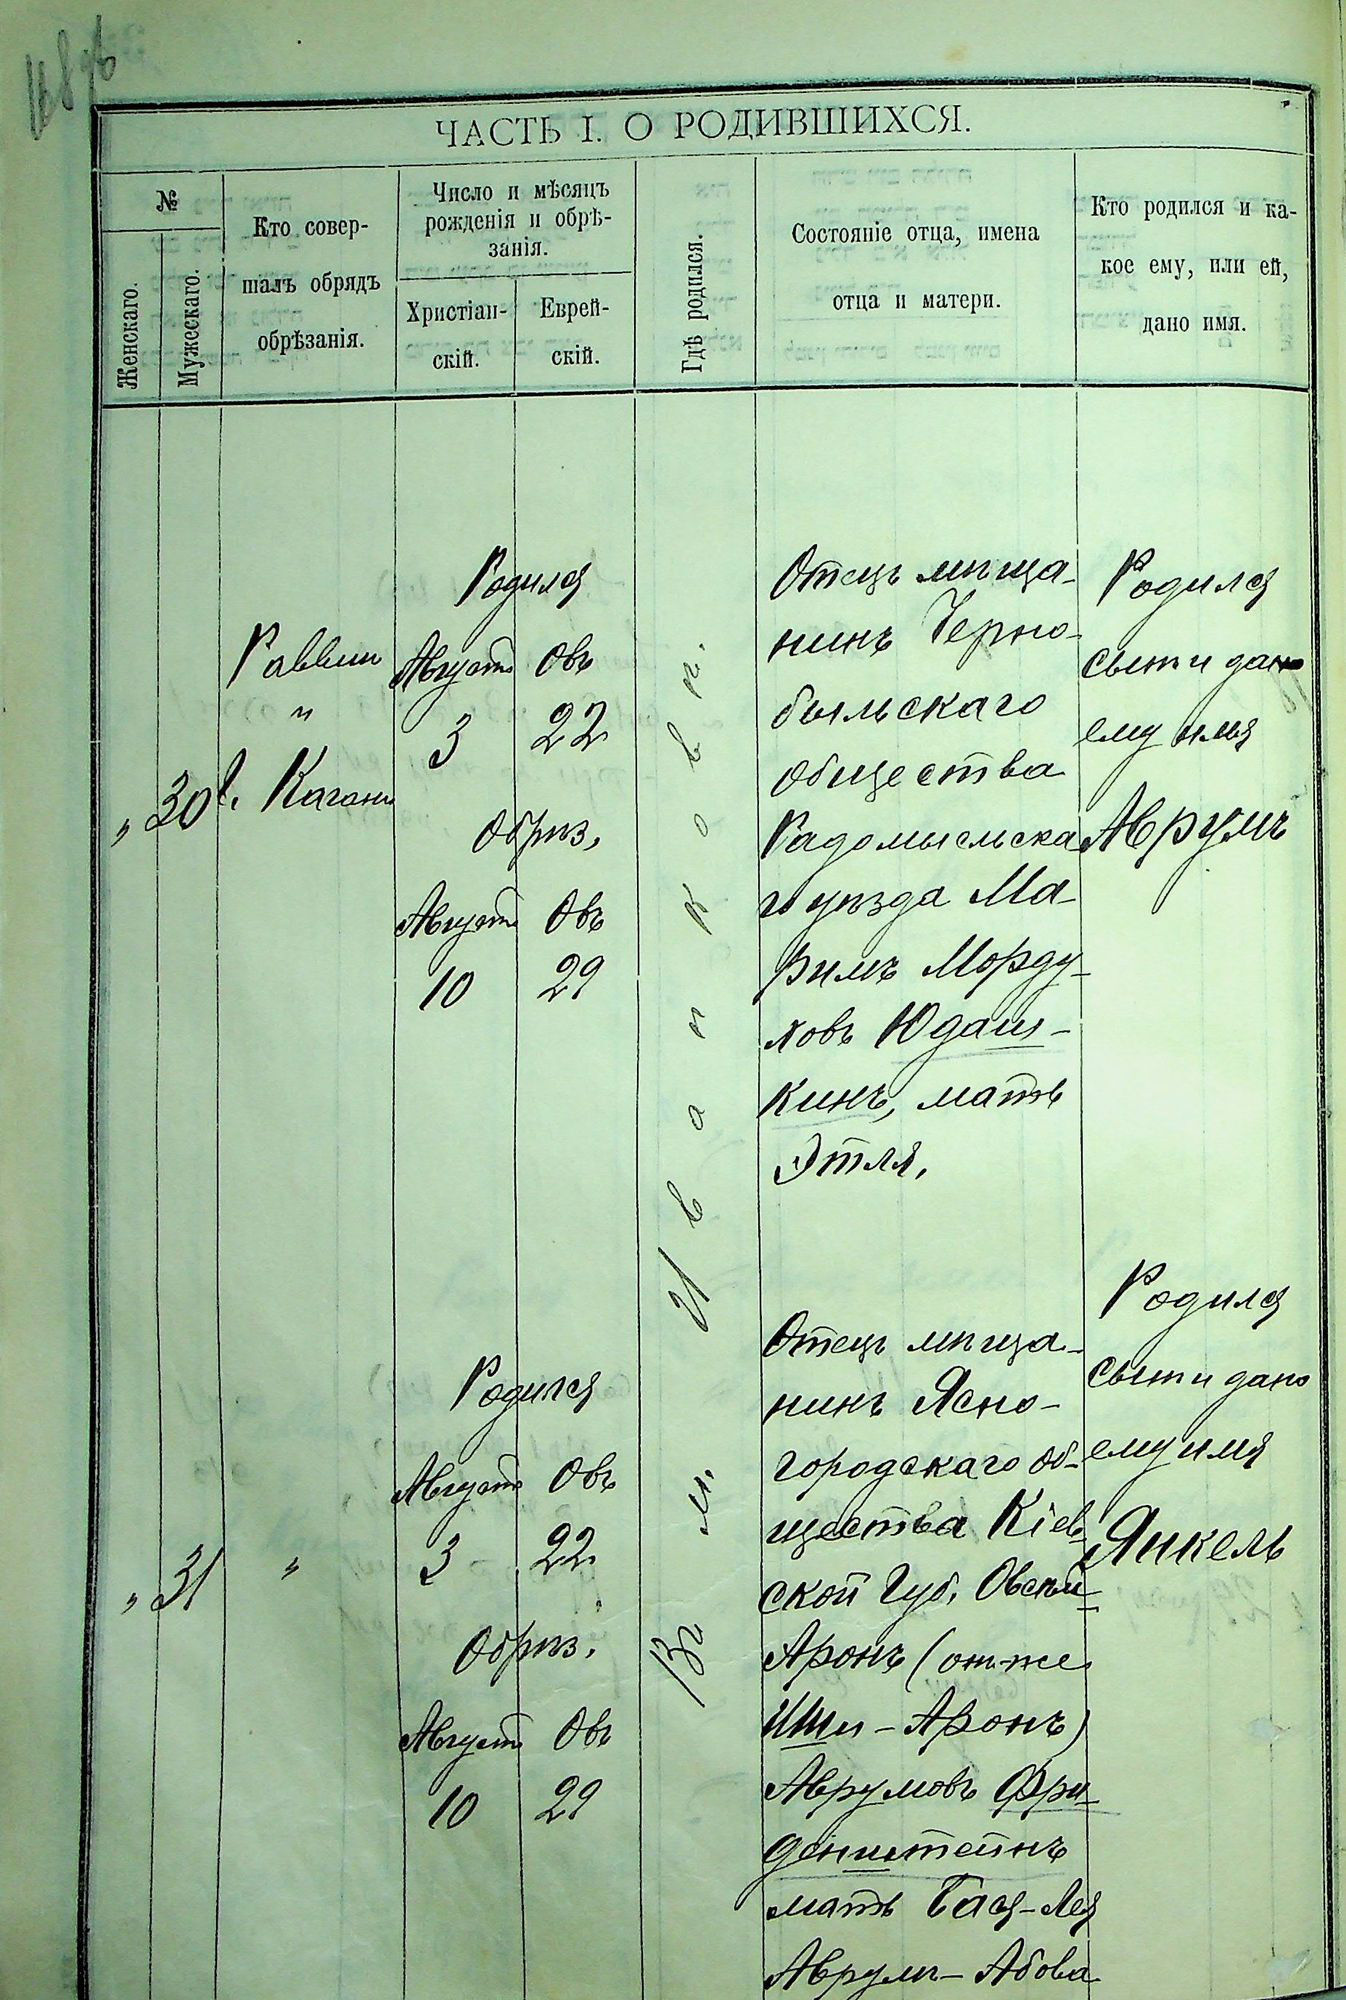 ЧАСТЬ I. О РОДИВШИХСЯ.
№
Женскаго.
Мужескаго.
Кто совер-
шалъ обрядъ
обрѣзанія.
Число и мѣсяцъ
рожденія и обрѣ-
занія.
Христіан-
скій.
Еврей-
скій.
Гдѣ родился.
Состояніе отца, имена
отца и матери.
Кто родился и ка-
кое ему, или ей,
дано имя.
" 30
Раввин
"
Каганъ
Родился
Августъ Овъ
3 22
Обрѣз.
Августъ Овъ
10 29
Въ м. Иванковѣ.
Отецъ мѣща-
нинъ Черно-
быльскаго
общества
Радомысльска
го уѣзда Ма-
римъ Морду-
ховъ Юдаш-
кинъ, мать
Этля.
Родился
сынъ и дано
ему имя
Аврумъ
" 31
"
Родился
Августъ Овъ
3 22
Обрѣз.
Августъ Овъ
10 29
Отецъ мѣща-
нинъ Ясно-
городскаго об-
щества Кіев-
ской Губ. Овсѣй-
Аронъ (онъ-же
Аронъ)
Аврумовъ Фри-
денштейнъ
мать Бася-Лея
Аврумъ-Абова
Родился
сынъ и дано
ему имя
Янкель